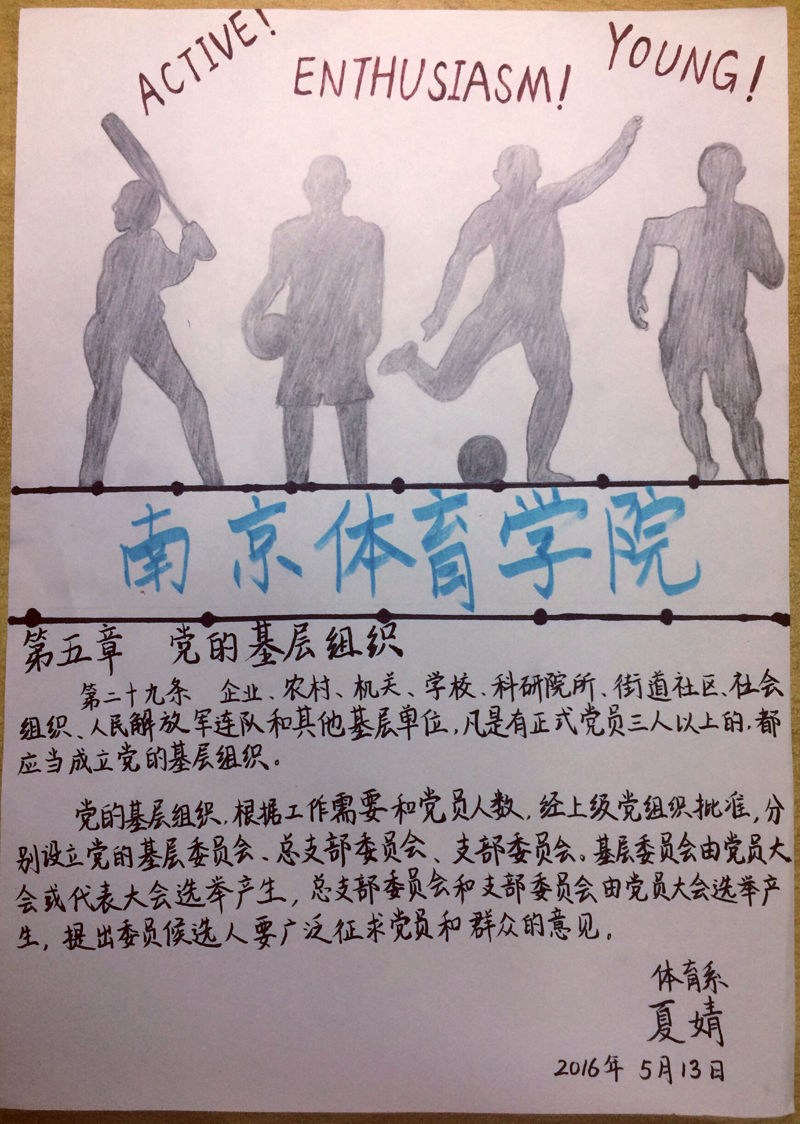 ACTIVE!
ENTHUSIASM!
YOUNG!
南京体育学院
第五章 党的基层组织
第二十九条 企业、农村、机关、学校、科研院所、街道社区、社会
组织、人民解放军连队和其他基层单位,凡是有正式党员三人以上的,都
应当成立党的基层组织。
党的基层组织,根据工作需要和党员人数,经上级党组织批准,分
别设立党的基层委员会、总支部委员会、支部委员会。基层委员会由党员大
会或代表大会选举产生,总支部委员会和支部委员会由党员大会选举产
生,提出委员候选人要广泛征求党员和群众的意见。
体育系
夏婧
2016年 5月13日